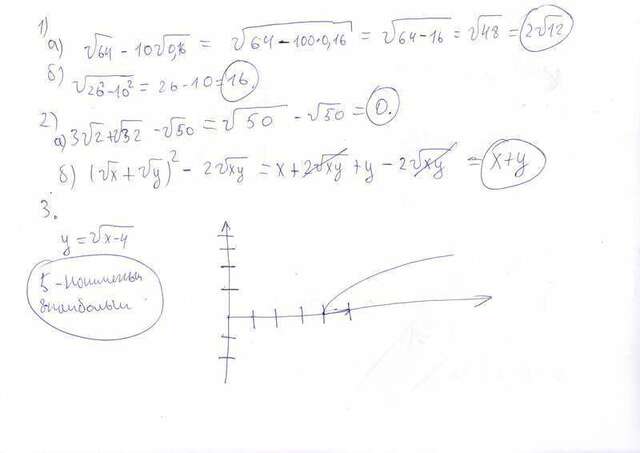 1)
а) √64 - 10√0,16 = √64 - 100·0,16 = √64-16 = √48 = 2√12
б) √26²-10² = 26-10 = 16.
2)
а) 3√2 + √32 - √50 = √50 - √50 = 0.
б) (√x + √y)² - 2√xy = x + 2√xy + y - 2√xy = x+y
3.
y = √x-4
5 -